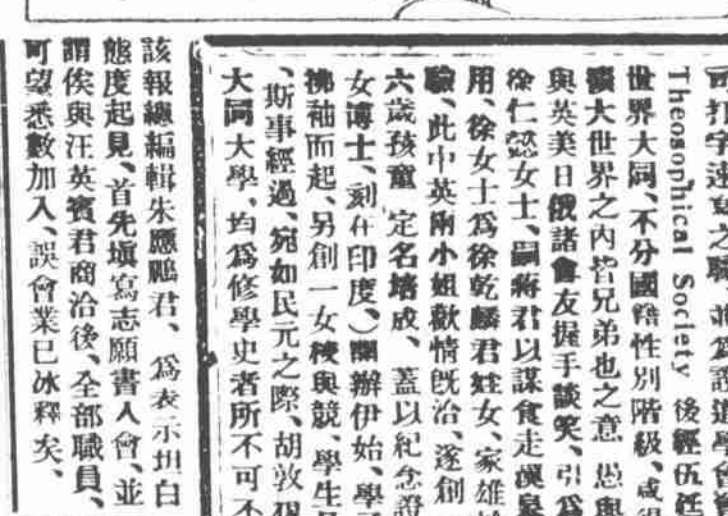 Theosophical Society 後經伍廷
世界大同、不分國籍性別階級、咸得
大世界之內皆兄弟也之意
與英美日俄諸會友握手談笑、引爲
徐仁慤女士、嗣蔣君以謀食走漢皋
用、徐女士爲徐乾麟君姪女、家雄於
驗、此中英兩小姐歡情旣洽、遂創
六歲孩童 定名培成、蓋以紀念證
女博士、刻在印度、)開辦伊始、學
拂袖而起、另創一女校與競、學生
、斯事經過、宛如民元之際、胡敦復
大同大學、均爲修學史者所不可不
該報總編輯朱應鵬君、爲表示坦白
態度起見、首先塡寫志願書入會、並
謂俟與汪英賓君商洽後、全部職員、
可望悉數加入、誤會業已冰釋矣、